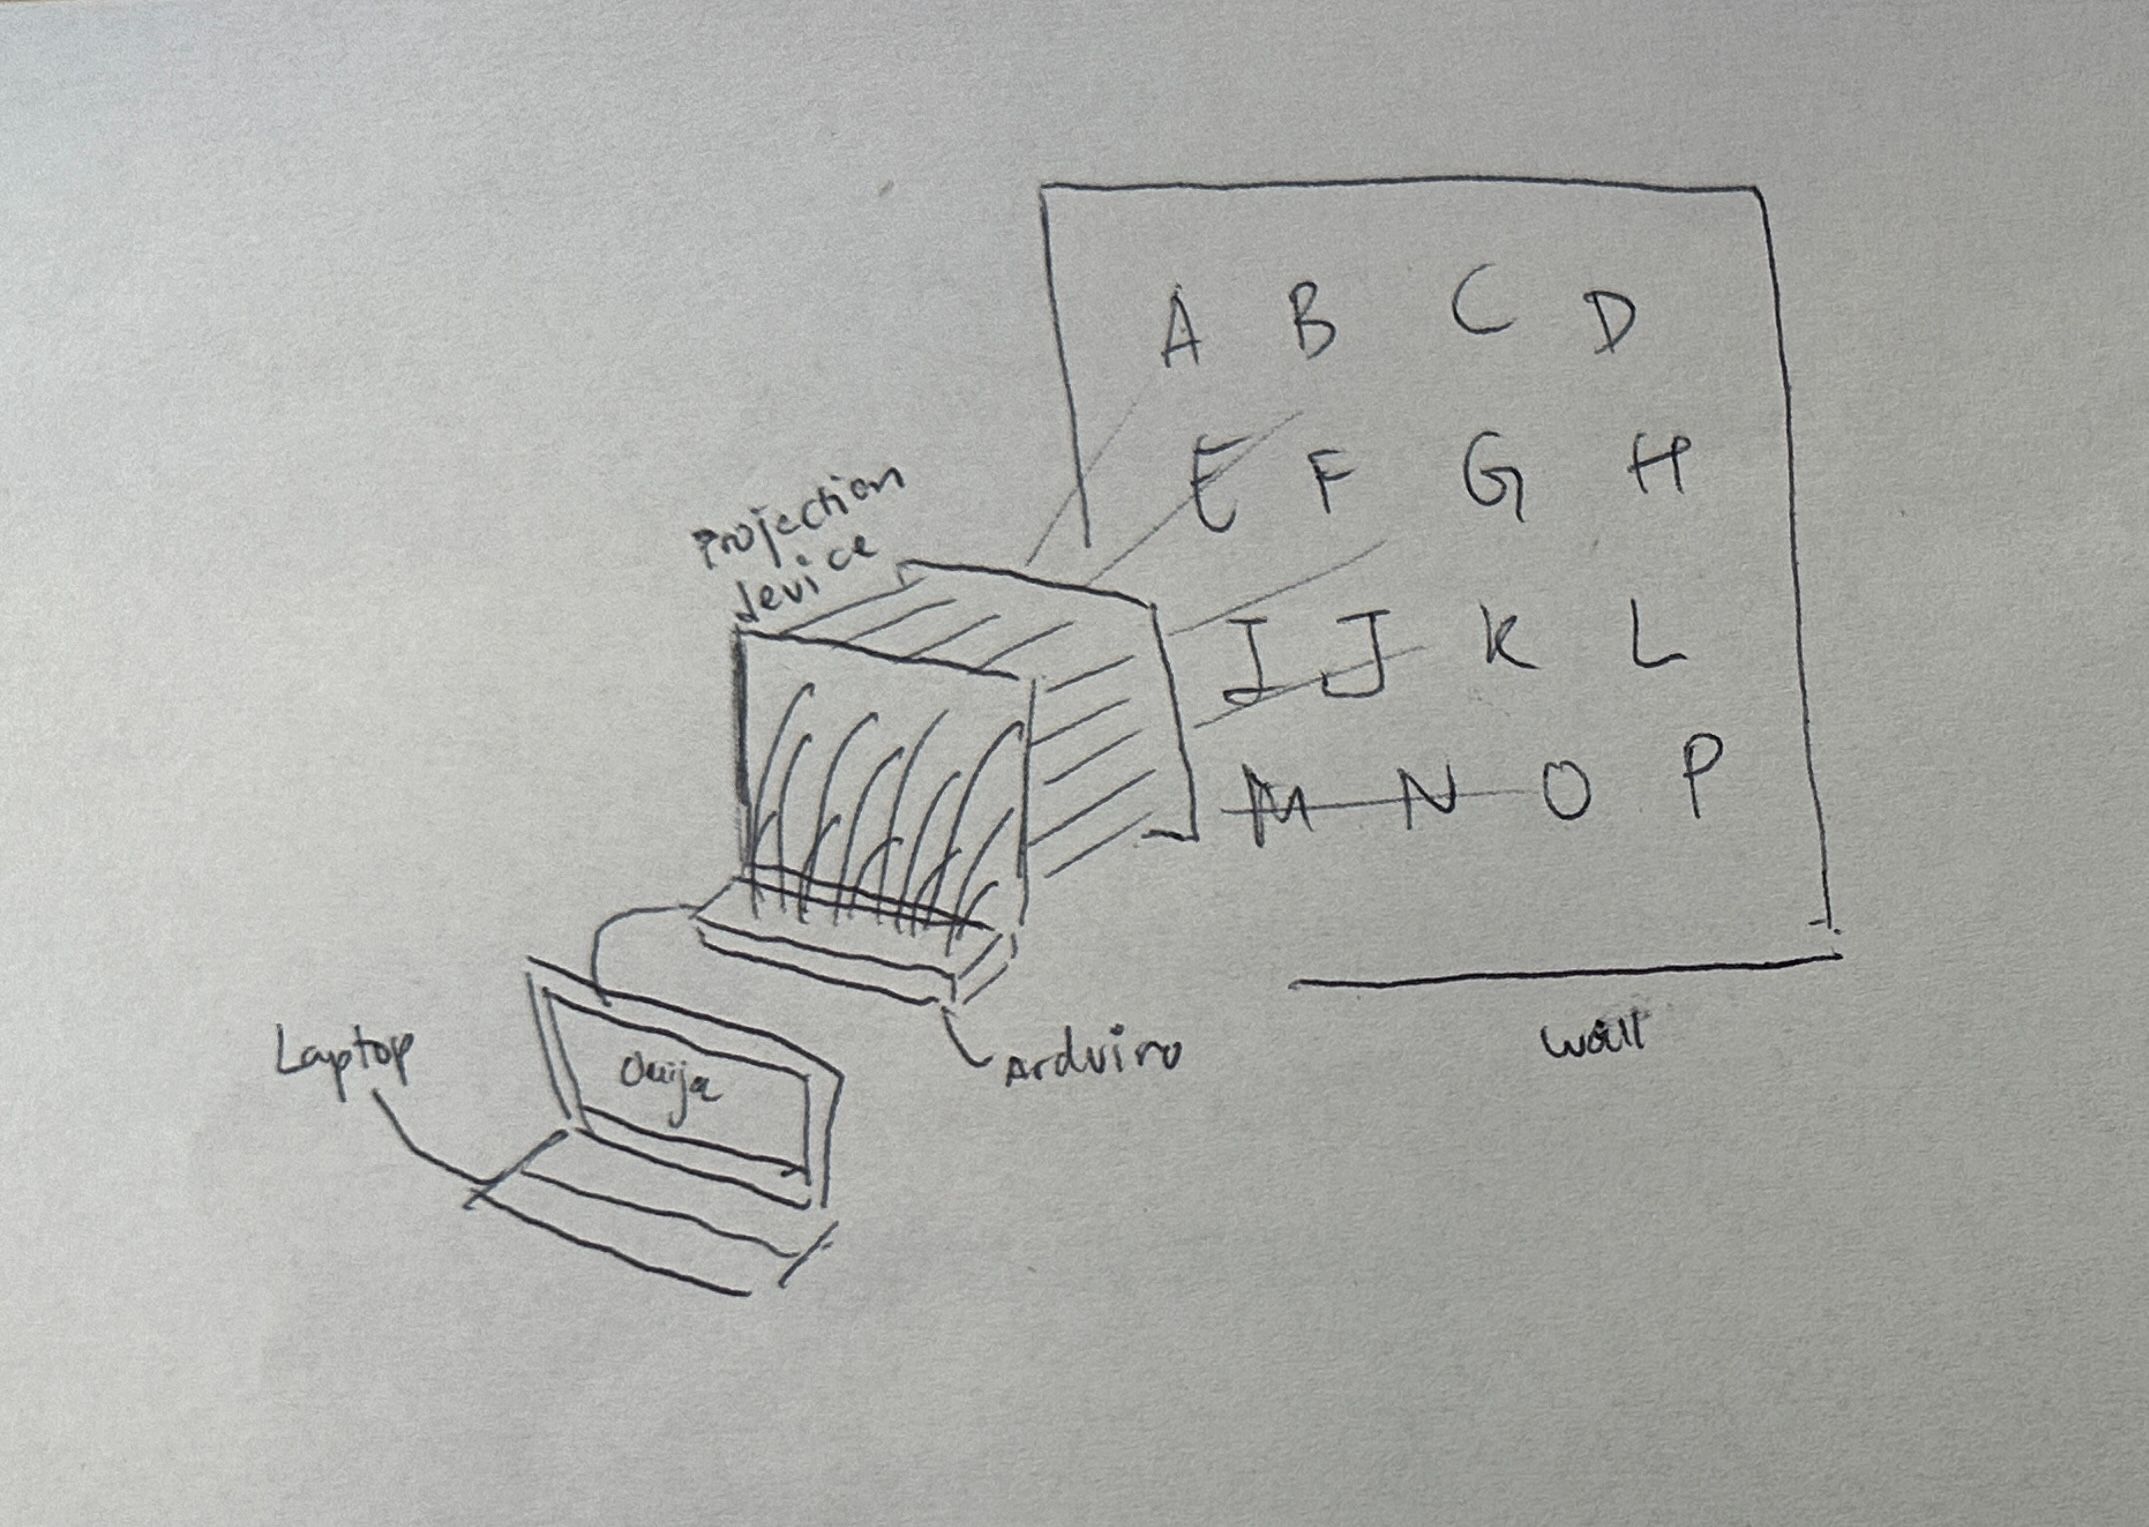 A B C D
E F G H
Projection
device
I J K L
M N O P
Laptop
Ouija
Arduino
wall